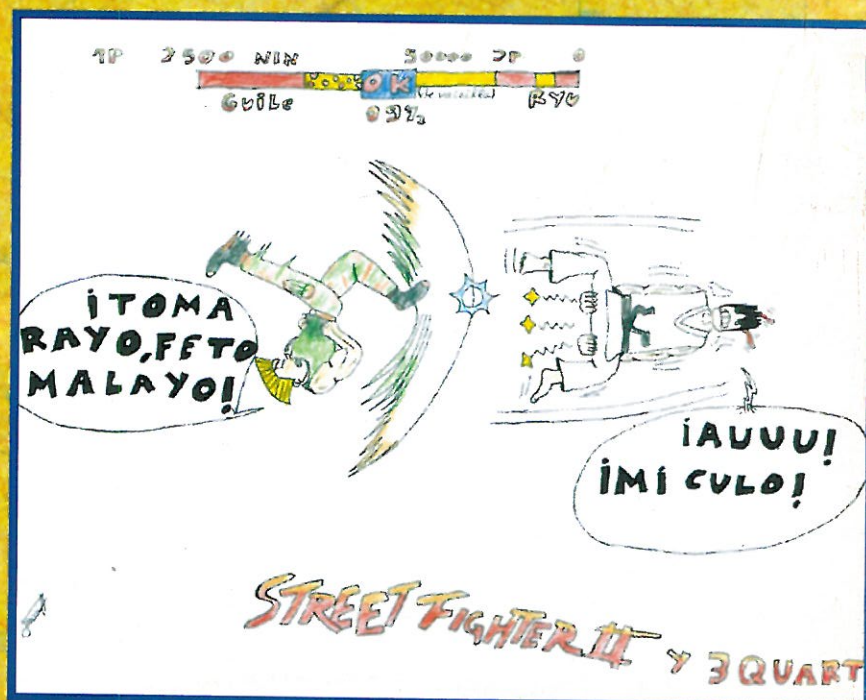 1P 2500 NIN 50000 2P 0
OK
GUILE RYU
¡TOMA
RAYO, FETO
MALAYO!
¡AUUU!
¡MI CULO!
STREET FIGHTER II Y 3 QUART